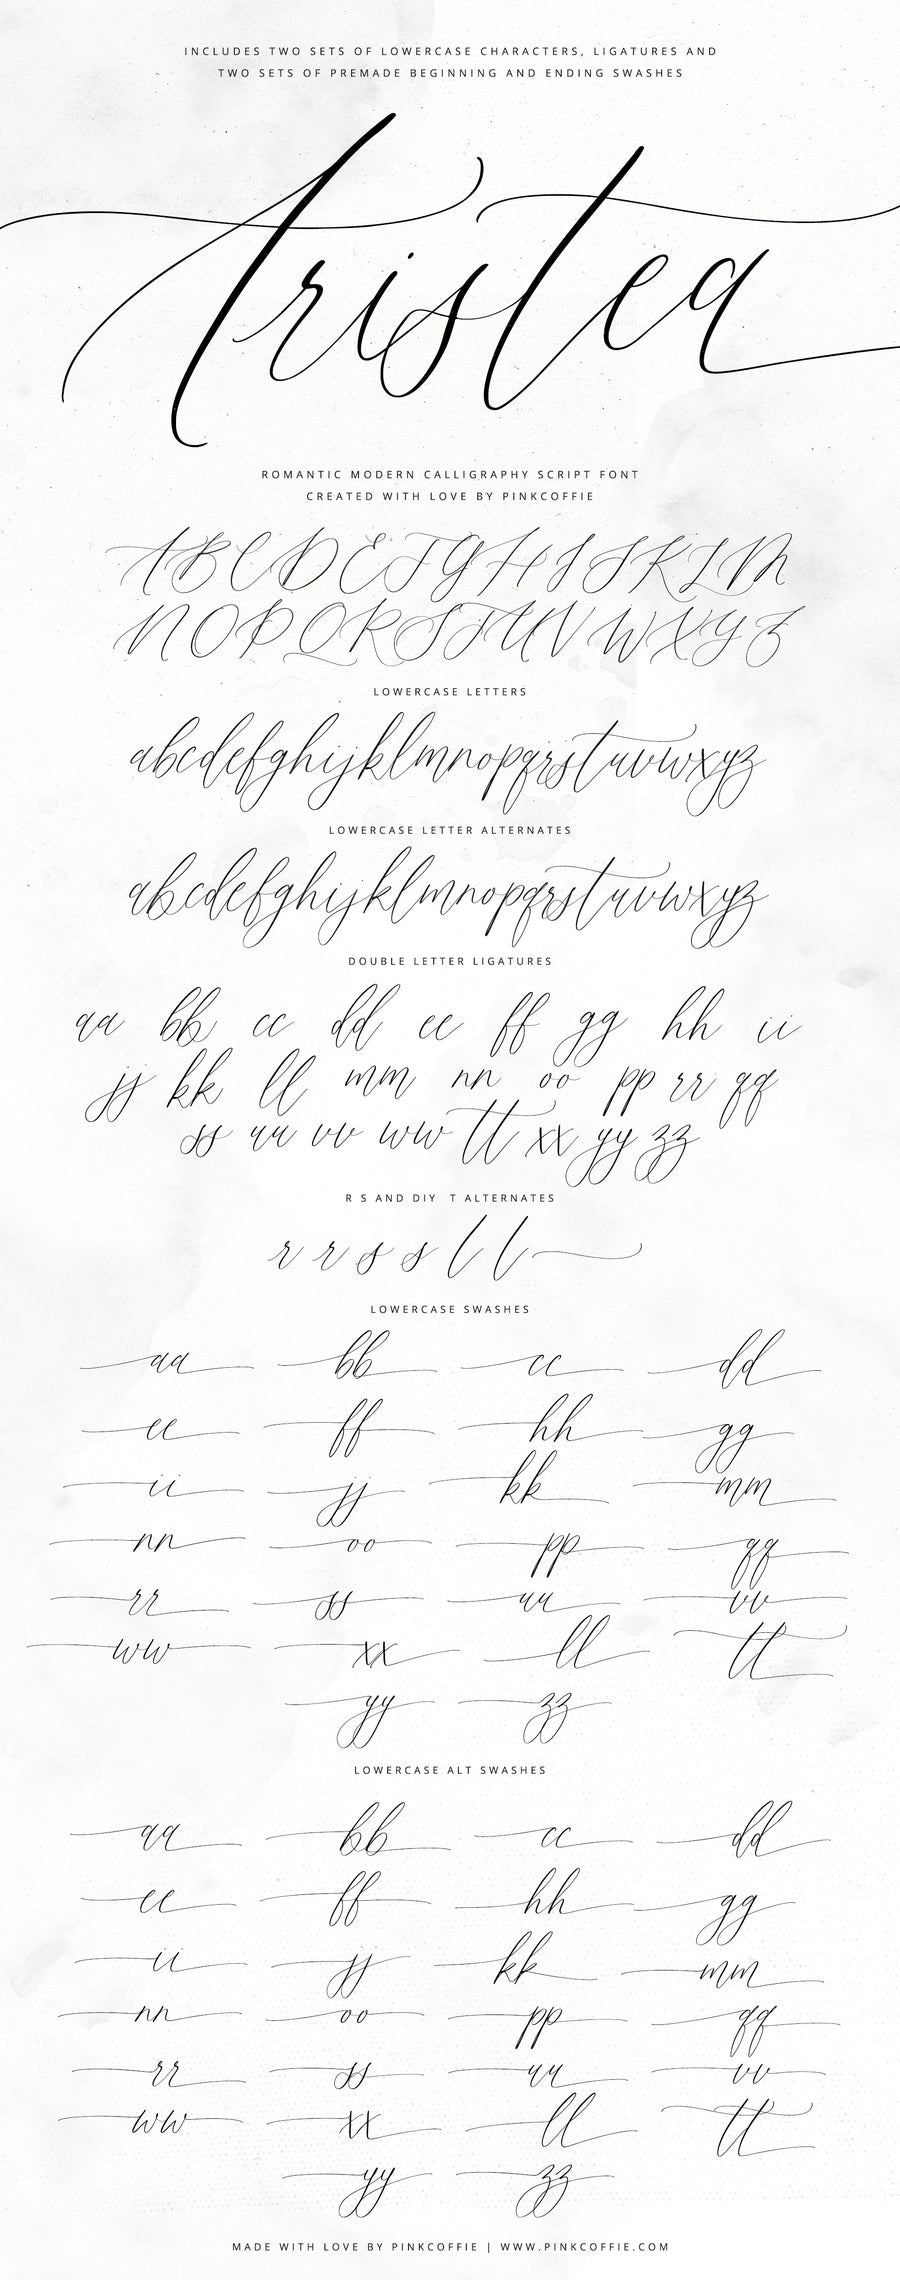 INCLUDES TWO SETS OF LOWERCASE CHARACTERS, LIGATURES AND
TWO SETS OF PREMADE BEGINNING AND ENDING SWASHES
Tristea
ROMANTIC MODERN CALLIGRAPHY SCRIPT FONT
CREATED WITH LOVE BY PINKCOFFIE
ABCDEFGHIJKLM
NOPQRSTUVWXYZ
LOWERCASE LETTERS
abcdefghijklmnopqrstuvwxyz
LOWERCASE LETTER ALTERNATES
abcdefghijklmnopqrstuvwxyz
DOUBLE LETTER LIGATURES
aa bb cc dd ee ff gg hh ii
jj kk ll mm nn oo pp rr qq
ss uu vv ww tt xx yy zz
R S AND DIY T ALTERNATES
r r s s l l
LOWERCASE SWASHES
aa bb cc dd
ee ff hh gg
ii jj kk mm
nn oo pp qq
rr ss uu vv
ww xx ll tt
yy zz
LOWERCASE ALT SWASHES
aa bb cc dd
ee ff hh gg
ii jj kk mm
nn oo pp qq
rr ss uu vv
ww xx ll tt
yy zz
MADE WITH LOVE BY PINKCOFFIE | WWW.PINKCOFFIE.COM